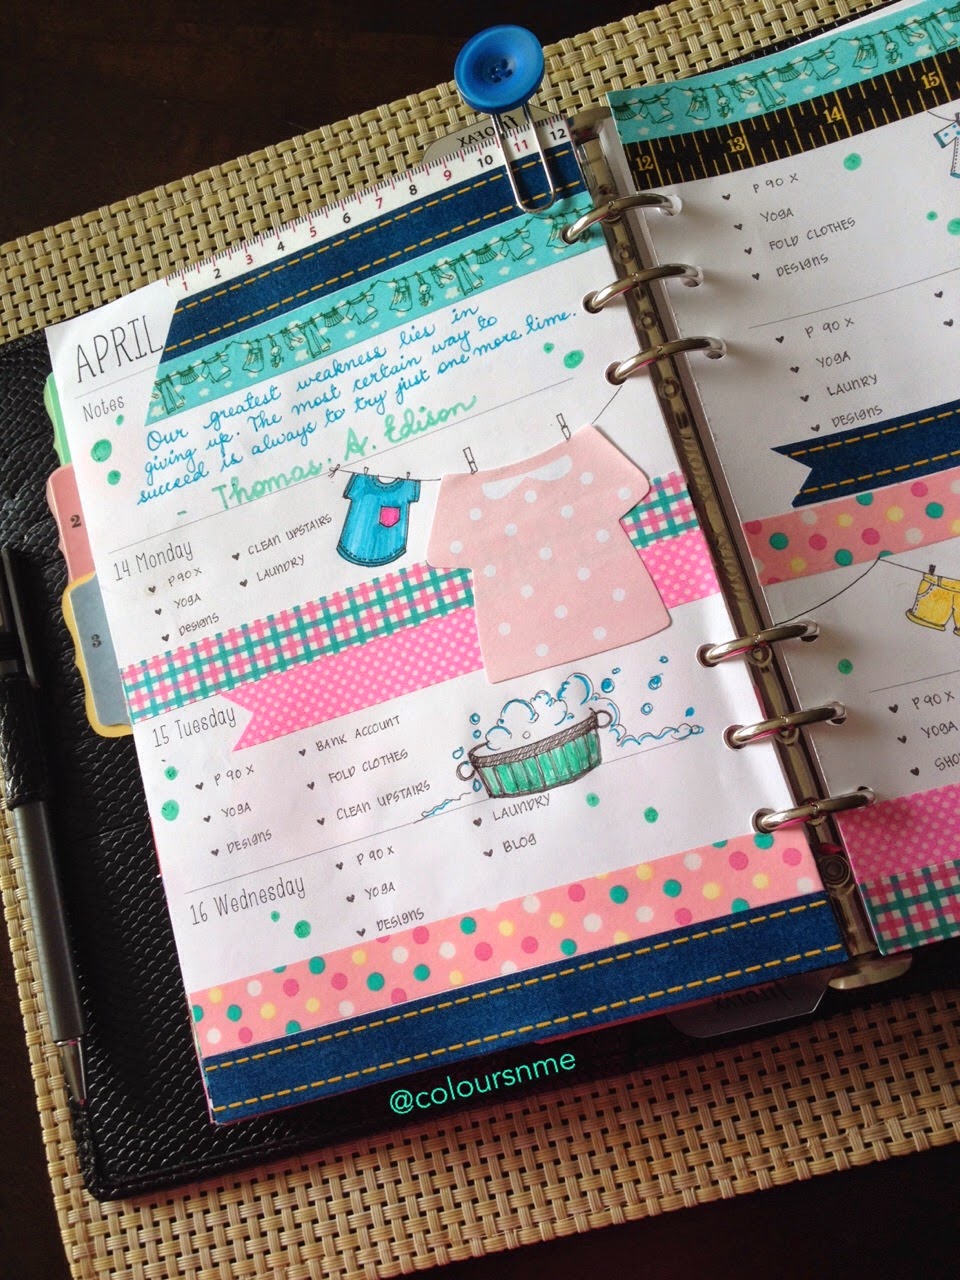 FILOFAX
1 2 3 4 5 6 7 8 9 10 11 12
APRIL
Notes
Our greatest weakness lies in
giving up. The most certain way to
succeed is always to try just one more time.
- Thomas. A. Edison
14 Monday
P90X
YOGA
DESIGNS
CLEAN UPSTAIRS
LAUNDRY
2
3
15 Tuesday
P 90 X
YOGA
DESIGNS
BANK ACCOUNT
FOLD CLOTHES
CLEAN UPSTAIRS
16 Wednesday
P 90 X
YOGA
DESIGNS
LAUNDRY
BLOG
12 13 14 15
P 90 X
YOGA
FOLD CLOTHES
DESIGNS
P 90 X
YOGA
LAUNRY
DESIGNS
P 90 X
YOGA
filofax
@coloursnme